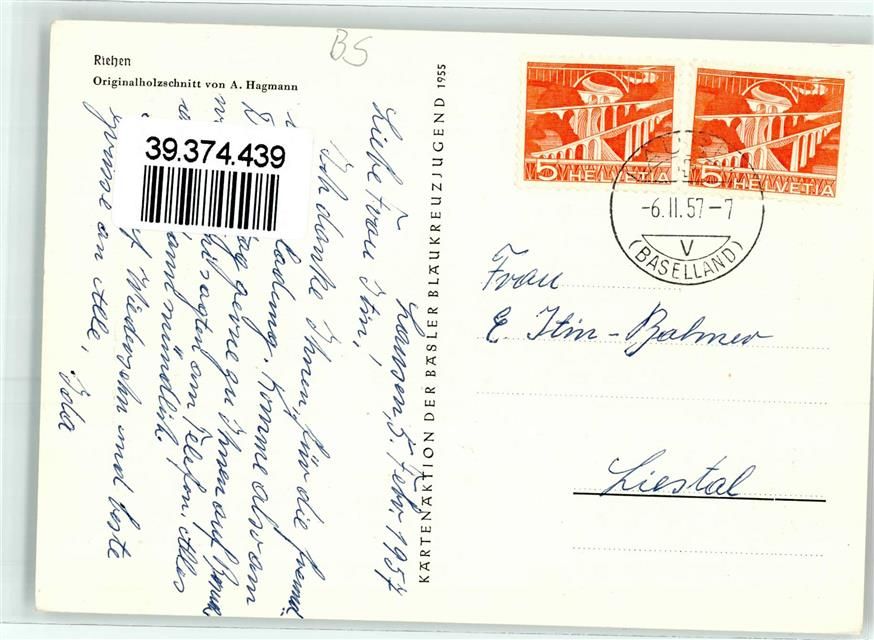 BS
Riehen
Originalholzschnitt von A. Hagmann
39.374.439
KARTENAKTION DER BASLER BLAUKREUZJUGEND 1955
5 HELVETIA
5 HELVETIA
-6.II.57-7
V
(BASELLAND)
Lausen, 5. Febr. 1957
Liebe Frau Itin!
Ich danke Ihnen, für die freund
ladung. Komme also am
tag gerne zu Ihnen auf
am Telefon. Alles
dann mündlich!
f Wiedersehn und beste
Grüsse an Alle,
Frau
E. Itin-Balmer
Liestal